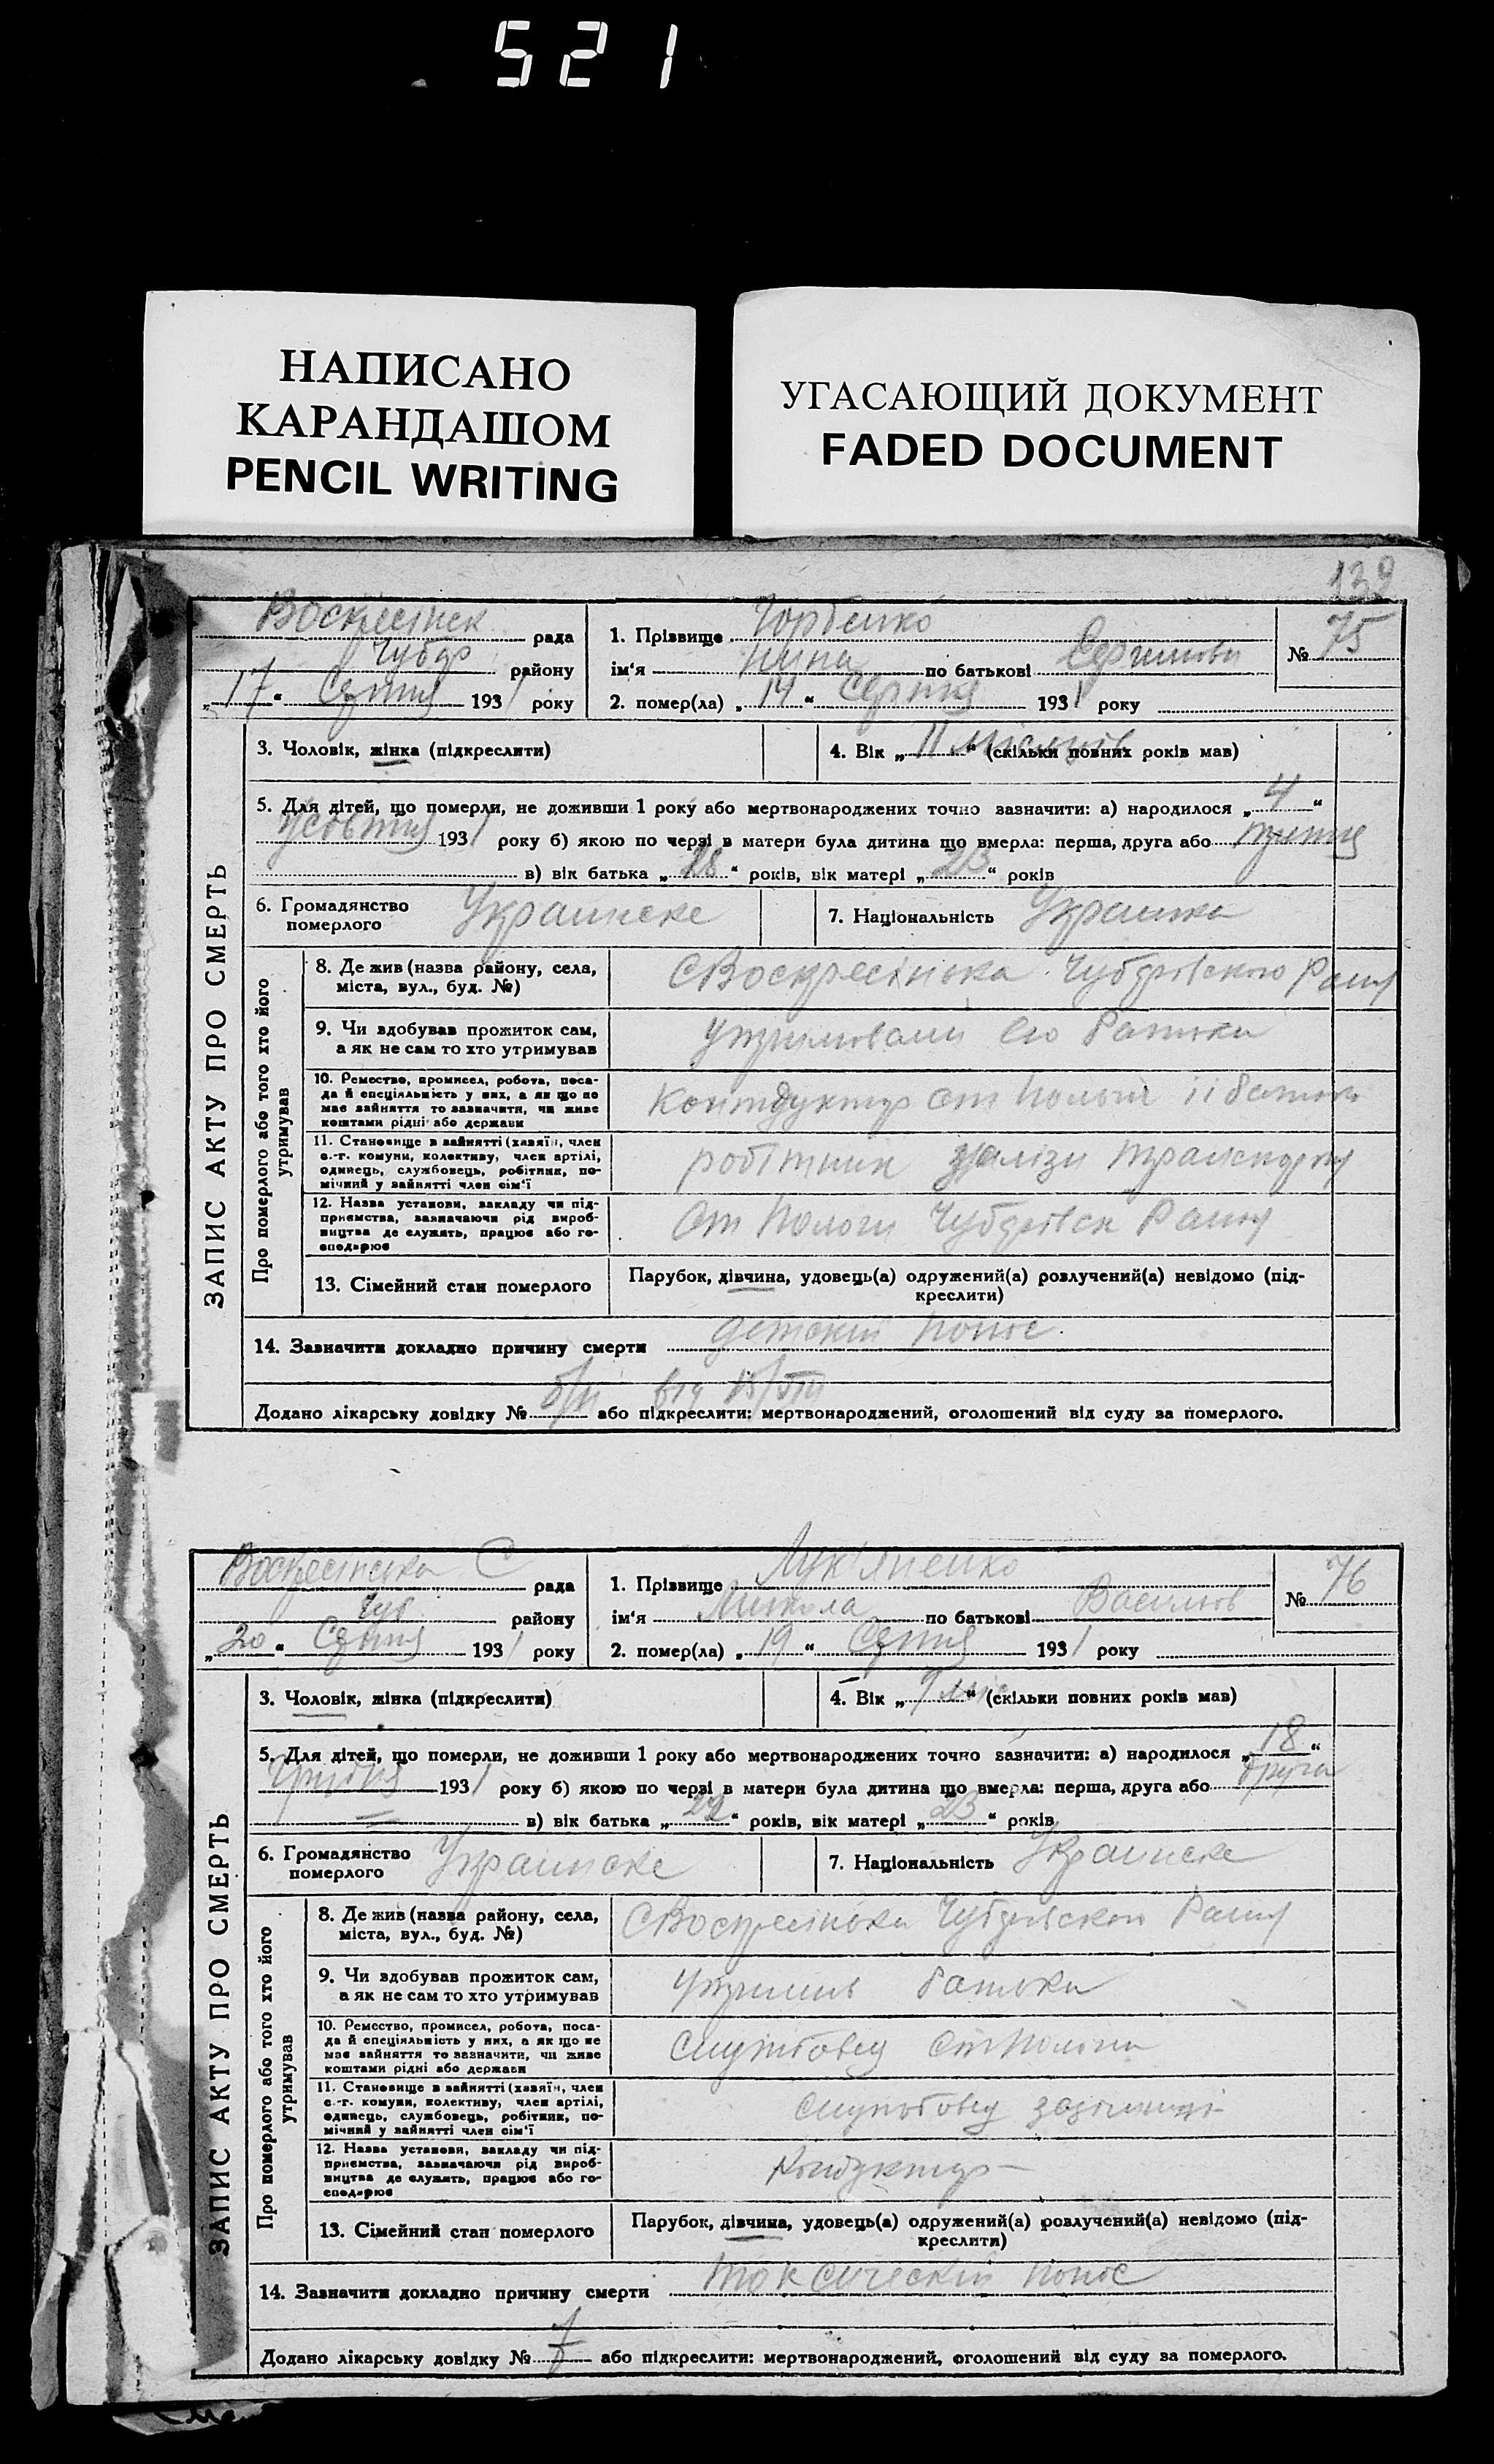 521
НАПИСАНО
КАРАНДАШОМ
PENCIL WRITING
УГАСАЮЩИЙ ДОКУМЕНТ
FADED DOCUMENT
139
ЗАПИС АКТУ ПРО СМЕРТЬ
Воскресінск рада
Чубар району
„17“ Серпня 1931 року
1. Прізвище Горбенко
ім'я Нина по батькові
2. помер(ла) „14“ Серпня 1931 року
№ 75
3. Чоловік, жінка (підкреслити)
4. Вік „11 місяців“ (скільки повних років мав)
5. Для дітей, що померли, не доживши 1 року або мертвонароджених точно зазначити: а) народилося „4“
Жовтня 1931 року б) якою по черзі в матери була дитина що вмерла: перша, друга або третя
в) вік батька „28“ років, вік матері „23“ років
6. Громадянство померлого Украинске
7. Національність Украинка
Про померлого або того хто його утримував
8. Де жив (назва району, села, міста, вул., буд. №) С Воскресінька Чубарівского Раину
9. Чи здобував прожиток сам, а як не сам то хто утримував утримовали его батьки
10. Ремество, промисел, робота, посада й спеціяльність у них, а як що не має зайняття то зазначити, чи живе коштами рідні або держави Кондуктор ст Пологи іі батько
11. Становище в зайнятті (хазяїн, член с.-г. комуни, колективу, член артілі, одинець, службовець, робітник, помічний у зайнятті член сім'ї робітник залізн транспорту
12. Назва установи, закладу чи підприємства, зазначаючи рід виробництва де служать, працює або господарює ст Пологи Чубарівск Раину
13. Сімейний стан померлого Парубок, дівчина, удовець(а) одружений(а) розлучений(а) невідомо (підкреслити)
14. Зазначити докладно причину смерти детский понос
Додано лікарську довідку № б/н від 15/VIII або підкреслити: мертвонароджений, оголошений від суду за померлого.
ЗАПИС АКТУ ПРО СМЕРТЬ
Воскресінська С рада
Чуб району
„20“ Серпня 1931 року
1. Прізвище Лук'яненко
ім'я Микола по батькові Васильов
2. помер(ла) „19“ Серпня 1931 року
№ 76
3. Чоловік, жінка (підкреслити)
4. Вік „9 міс“ (скільки повних років мав)
5. Для дітей, що померли, не доживши 1 року або мертвонароджених точно зазначити: а) народилося „18“
Грудня 1931 року б) якою по черзі в матери була дитина що вмерла: перша, друга або друга
в) вік батька „22“ років, вік матері „23“ років
6. Громадянство померлого Украинске
7. Національність Украинске
Про померлого або того хто його утримував
8. Де жив (назва району, села, міста, вул., буд. №) С Воскресінька Чубарівского Раину
9. Чи здобував прожиток сам, а як не сам то хто утримував утримув батьки
10. Ремество, промисел, робота, посада й спеціяльність у них, а як що не має зайняття то зазначити, чи живе коштами рідні або держави службовец ст Пологи
11. Становище в зайнятті (хазяїн, член с.-г. комуни, колективу, член артілі, одинець, службовець, робітник, помічний у зайнятті член сім'ї службовец
12. Назва установи, закладу чи підприємства, зазначаючи рід виробництва де служать, працює або господарює Кондуктор
13. Сімейний стан померлого Парубок, дівчина, удовець(а) одружений(а) розлучений(а) невідомо (підкреслити)
14. Зазначити докладно причину смерти токсический понос
Додано лікарську довідку № або підкреслити: мертвонароджений, оголошений від суду за померлого.